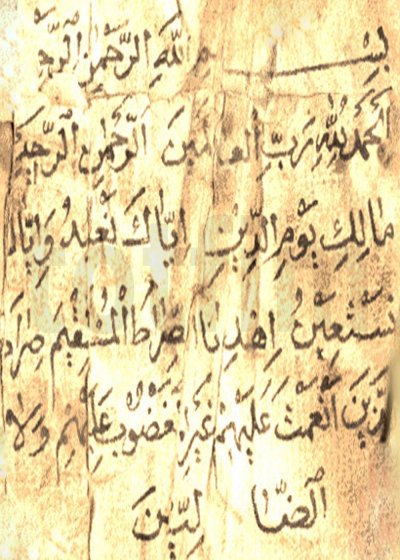 بِسْمِ اللَّهِ الرَّحْمَنِ الرَّحِ
الْحَمْدُ لِلَّهِ رَبِّ العالَمِينَ الرَّحْمَنِ الرَّحِيمِ
مَالِكِ يَوْمِ الدِّينِ اِيَّاكَ نَعْبُدُ وَاِيَّاكَ
نَسْتَعِينُ اِهْدِنَا صِرَاطَ الْمُسْتَقِيمَ صِرَاطَ
الَّذِينَ اَنْعَمْتَ عَلَيْهِمْ غَيْرِ مَغْضُوبِ عَلَيْهِمْ وَلَا
الضَّا لِّينَ